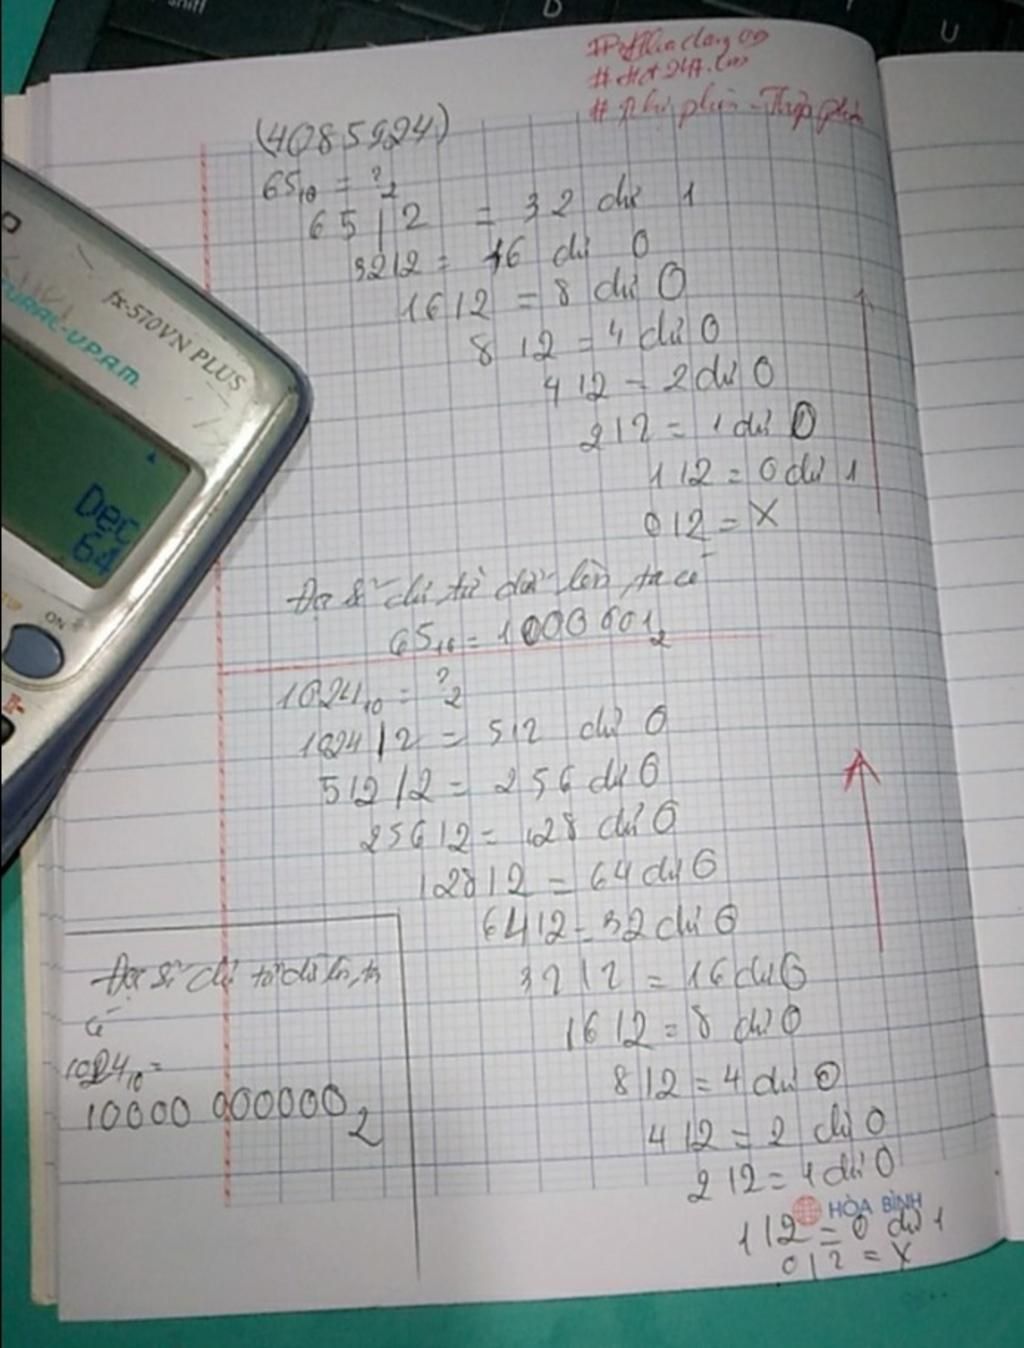 D
U
# Nhị phân - Thập phân
(4085924)
65₁₀ = ?₂
65 | 2 = 32 dư 1
32 | 2 = 16 dư 0
16 | 2 = 8 dư 0
8 | 2 = 4 dư 0
4 | 2 = 2 dư 0
2 | 2 = 1 dư 0
1 | 2 = 0 dư 1
0 | 2 = X
số dư từ dưới lên, ta có
65₁₀ = 1000001₂
1024₁₀ = ?₂
1024 | 2 = 512 dư 0
512 | 2 = 256 dư 0
256 | 2 = 128 dư 0
128 | 2 = 64 dư 0
64 | 2 = 32 dư 0
32 | 2 = 16 dư 0
16 | 2 = 8 dư 0
8 | 2 = 4 dư 0
4 | 2 = 2 dư 0
2 | 2 = 1 dư 0
1 | 2 = 0 dư 1
0 | 2 = X
số dư từ dưới lên, ta
có
1024₁₀ =
10000 000000₂
HÒA BÌNH
fx-570VN PLUS
NATURAL-V.P.A.M.
Dec
64
ON